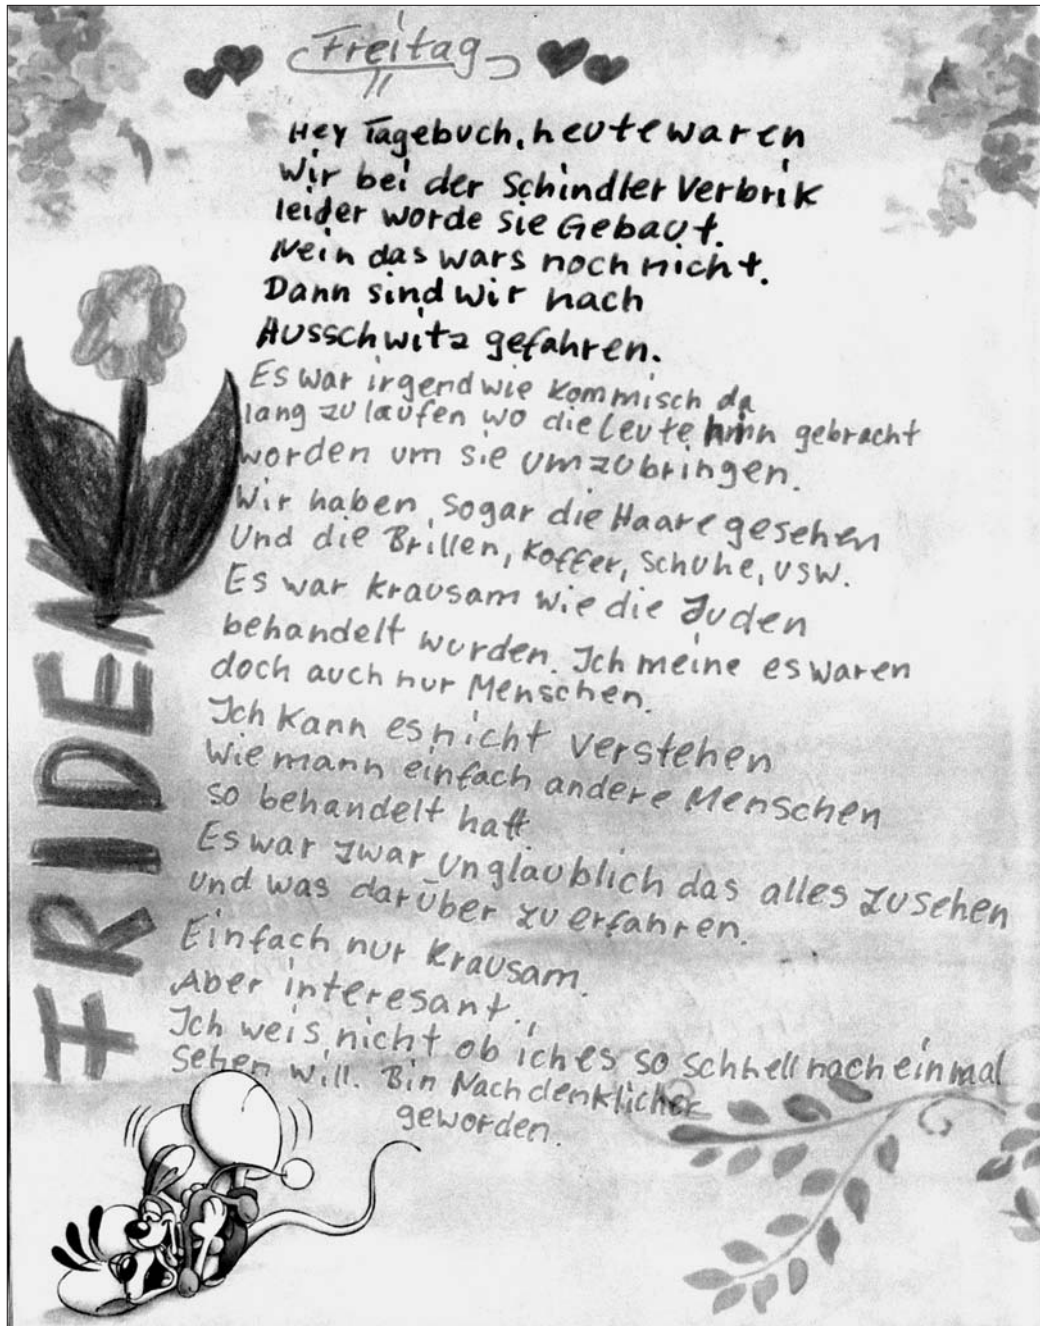 Freitag
Hey Tagebuch, heute waren
Wir bei der Schindler Verbrik
leider worde sie Gebaut.
Nein das wars noch nicht.
Dann sind wir nach
Ausschwitz gefahren.
Es war irgendwie kommisch da
lang zu laufen wo die Leute hin gebracht
worden um sie umzubringen.
Wir haben sogar die Haare gesehen
Und die Brillen, Koffer, Schuhe, usw.
Es war krausam wie die Juden
behandelt wurden. Ich meine es waren
doch auch nur Menschen.
Ich kann es nicht verstehen
Wie mann einfach andere Menschen
so behandelt hatt.
Es war zwar unglaublich das alles zusehen
und was darüber zu erfahren.
Einfach nur Krausam.
Aber interesant.
Ich weis nicht ob ich es so schnell nach einmal
Sehen will. Bin Nachdenklicher
geworden.
FRIDEN